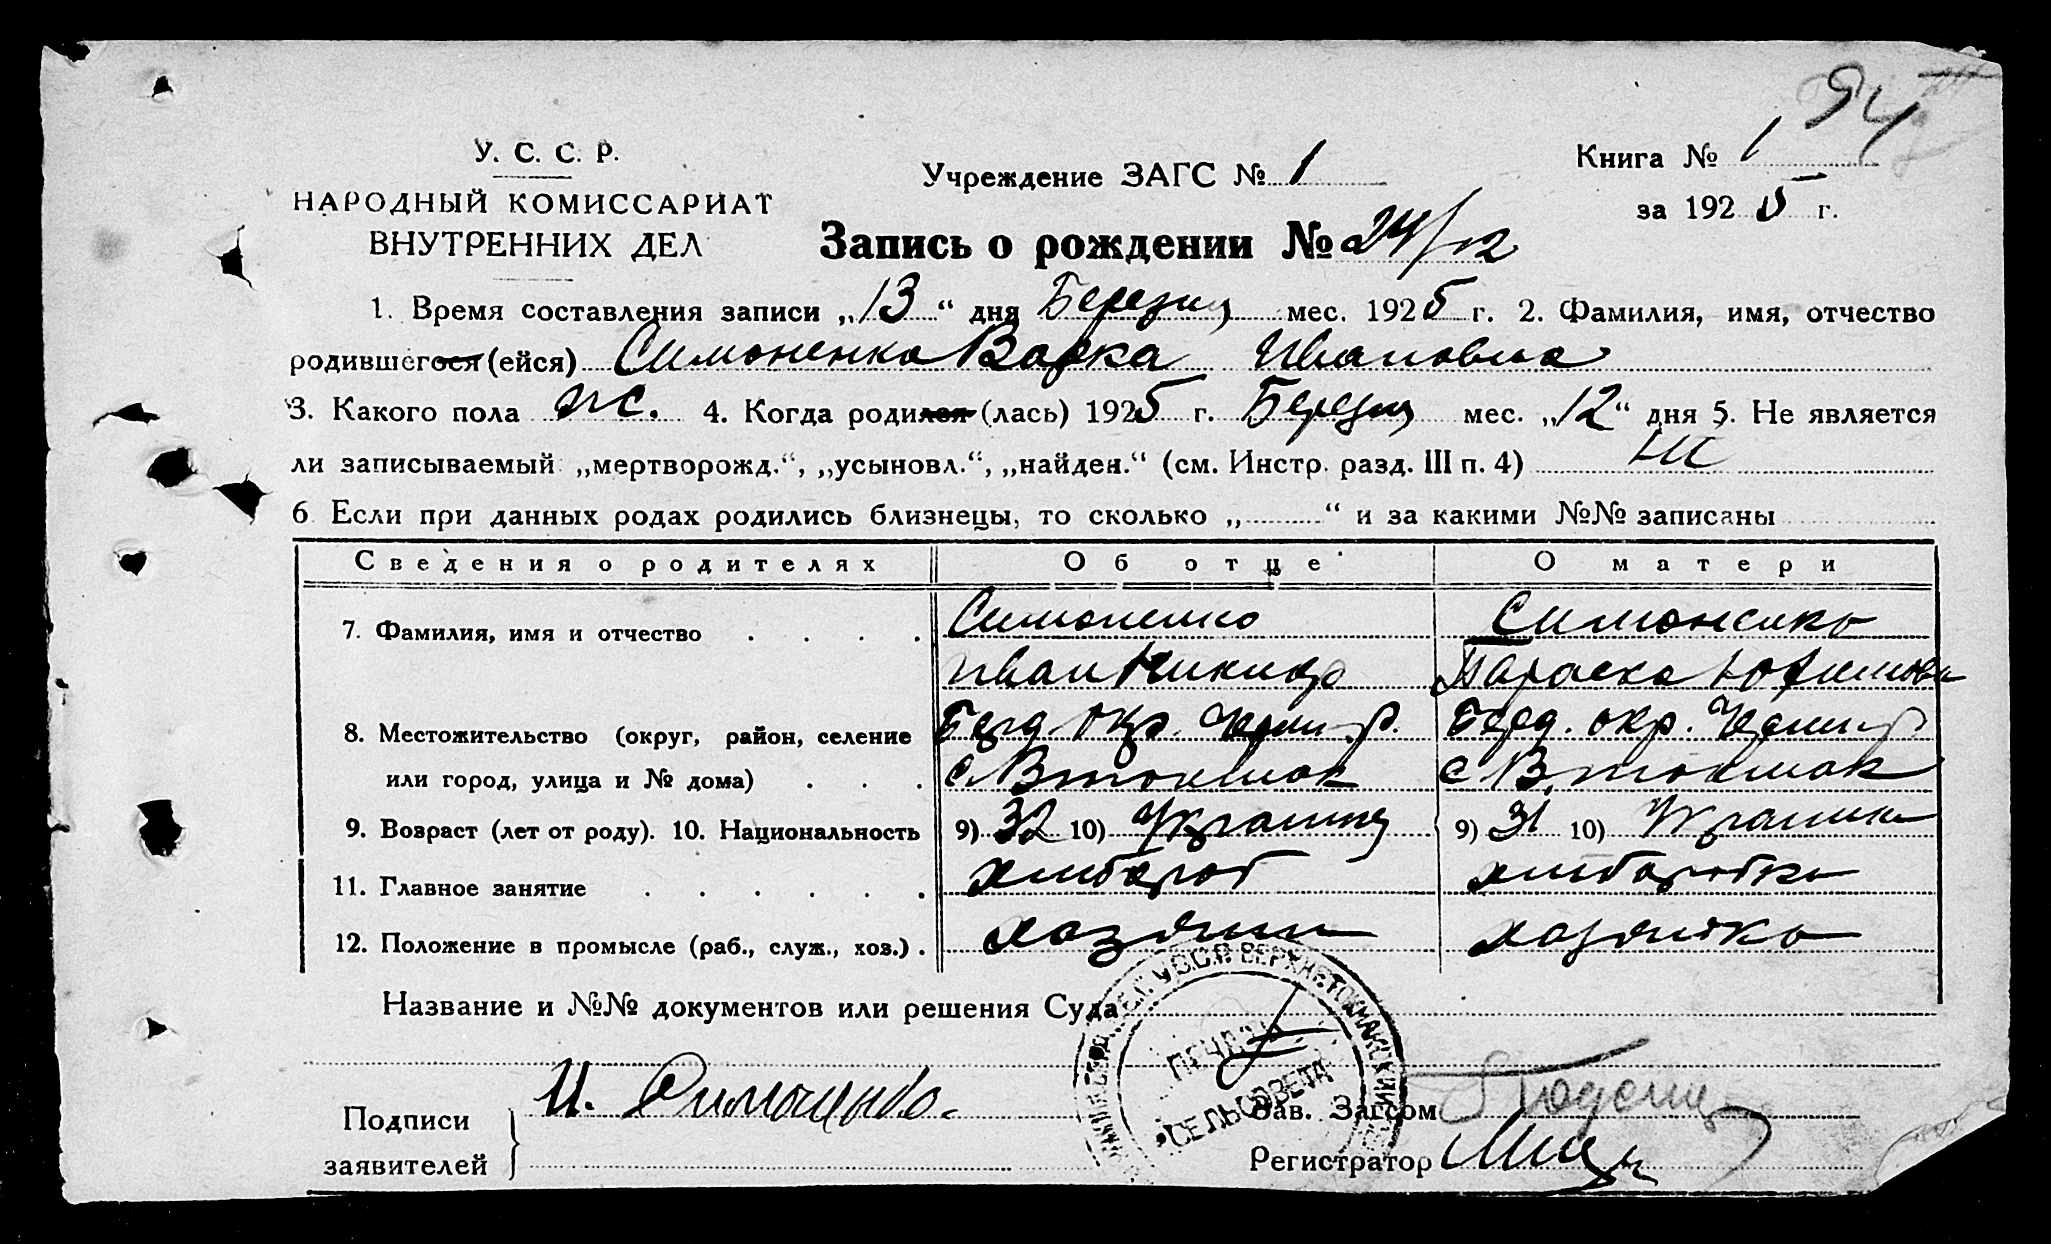 94
У. С. С. Р.
НАРОДНЫЙ КОМИССАРИАТ
ВНУТРЕННИХ ДЕЛ
Учреждение ЗАГС № 1
Книга № 1
за 1925 г.
Запись о рождении № 24/12
1. Время составления записи „13“ дня Березня мес. 1925 г. 2. Фамилия, имя, отчество
родившегося (ейся) Симоненко Варка Ивановна
3. Какого пола жс. 4. Когда родился (лась) 1925 г. Березня мес. „12“ дня 5. Не является
ли записываемый „мертворожд.“, „усыновл.“, „найден.“ (см. Инстр. разд. III п. 4) не
6 Если при данных родах родились близнецы, то сколько „ “ и за какими №№ записаны
Сведения о родителях Об отце О матери
7. Фамилия, имя и отчество Симоненко Симоненко
Иван Параска Юхимовн
8. Местожительство (округ, район, селение Берд. окр. р. Берд. окр. р
или город, улица и № дома) с В Токмак с В. Токмак
9. Возраст (лет от роду). 10. Национальность 9) 32 10) Украинц 9) 31 10) Украинк
11. Главное занятие хлибороб хлиборобка
12. Положение в промысле (раб., служ., хоз.) хозяин хозяйка
Название и №№ документов или решения Суда
У.С.С.Р. ВЕРХНЕ-ТОКМАКСКИЙ
ПЕЧАТЬ
СЕЛЬСОВЕТА
Подписи
заявителей
И. Симоненко.
Зав. Загсом
Регистратор